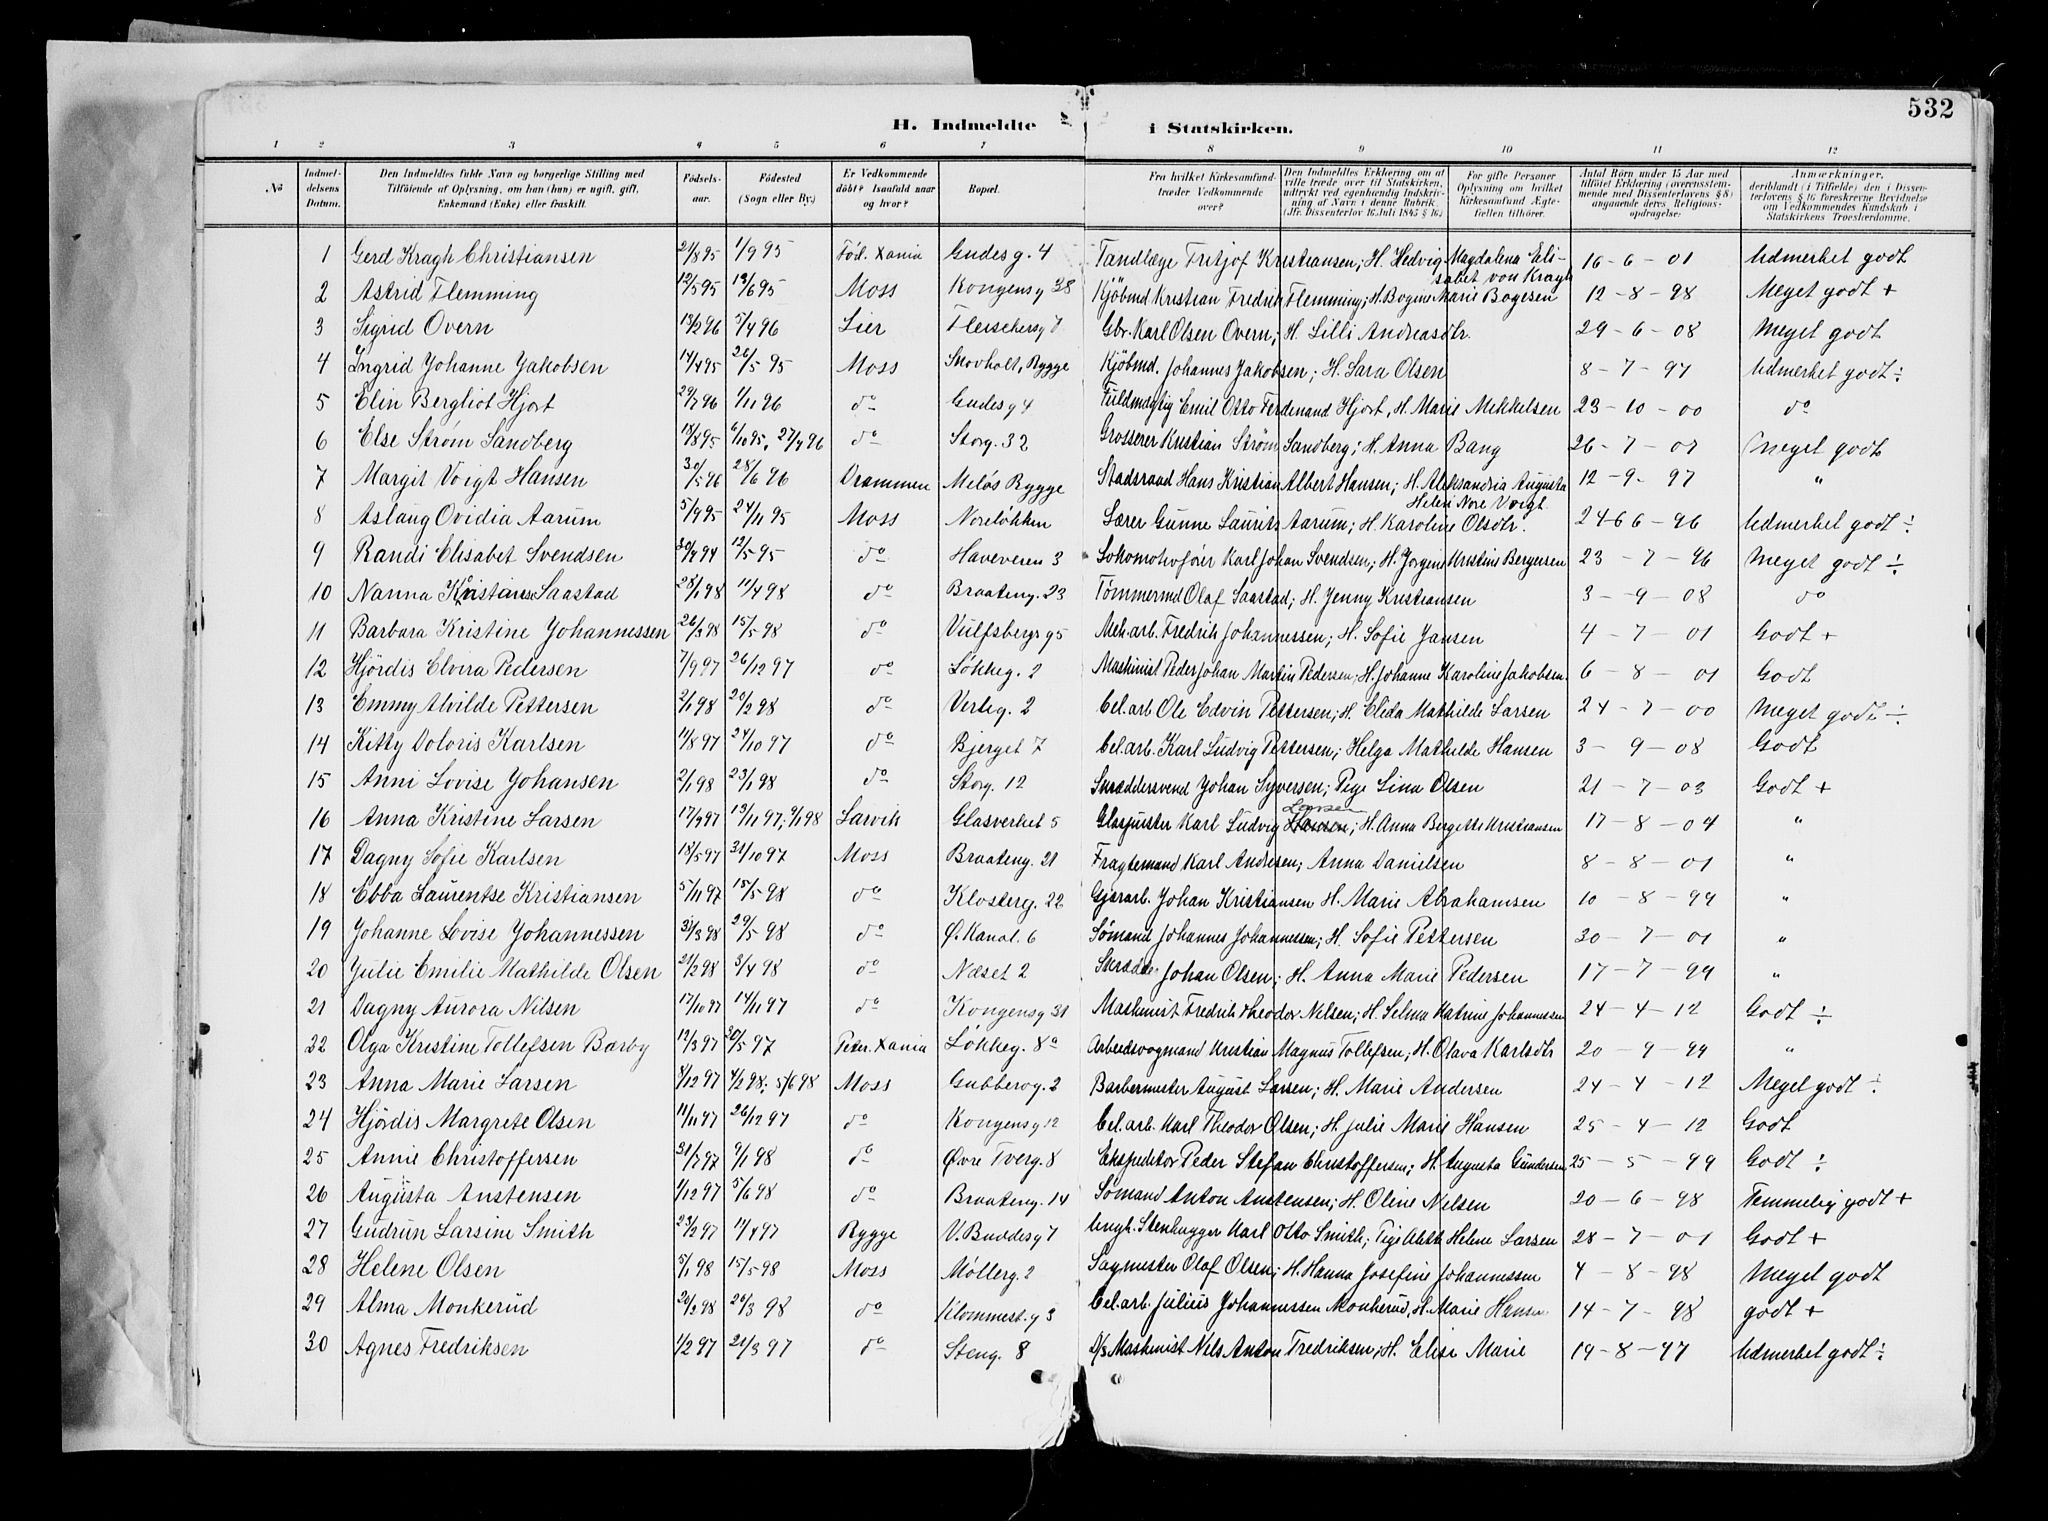 532
H. Indmeldte i Statskirken.
1 2 3 4 5 6 7 8 9 10 11 12
No
Indmeldelsens Datum.
Den Indmeldtes fulde Navn og borgerlige Stilling med Tilföiende af Oplysning, om han (hun) er ugift, gift, Enkemand (Enke) eller fraskilt.
Födselsaar.
Födested (Sogn eller By.)
Er Vedkommende döbt? Isaafald naar og hvor?
Bopæl.
Fra hvilket Kirkesamfund træder Vedkommende over?
Den Indmeldtes Erklæring om at ville træde over til Statskirken, udtrykt ved egenhændig Indskrivning af Navn i denne Rubrik. (Jfr. Dissenterlov 16 Juli 1845 § 16.)
For gifte Personer Oplysning om hvilket Kirkesamfund Ægtefællen tilhörer.
Antal Börn under 15 Aar med tilföiet Erklæring (overensstemmende med Dissenterlovens § 8) angaaende deres Religionsopdragelse.
Anmærkninger, deriblandt (i Tilfælde) den i Dissenterlovens § 16 foreskrevne Bevidnelse om Vedkommendes Kundskab i Statskirkens Troeslærdomme.
1 Gerd Kragh Christiansen 21/8 95 1/9 95 Föd. Xania Gudesg. 4 Tandlæge Fritjof Kristiansen; H. Hedvig Magdalena Elisabet von Kragh 16-6-01 Udmerket godt
2 Astrid Flemming 12/5 95 19/6 95 Moss Kongensg 38 Kjöbmd Kristian Fredrik Flemming; H. Bogine Marie Bogesen 12-8-98 Meget godt +
3 Sigrid Overn 13/2 96 5/4 96 Lier Fleischersg 7 Gbr. Karl Olsen Overn; H. Lilli Andreasdtr. 29-6-08 Meget godt
4 Ingrid Johanne Jakobsen 14/4 95 26/5 95 Moss Skovholt, Rygge Kjöbmd. Johannes Jakobsen; H. Sara Olsen 8-7-97 Udmerket godt ÷
5 Elin Bergliot Hjort 29/7 96 1/11 96 do Gudesg 4 Fuldmægtig Emil Otto Ferdinand Hjort, H. Marie Mekkelsen 23-10-00 do
6 Else Strøm Sandberg 13/8 95 6/10 95, 27/4 96 do Storg. 32 Grosserer Kristian Strøm Sandberg; H. Anna Bang 26-7-07 Meget godt
7 Margit Voigt Hansen 30/5 96 28/6 96 Drammen Meløs Rygge Stadsraad Hans Kristian Albert Hansen; H. Aleksandria Augusta Helene Nore Voigt 12-9-97 "
8 Aslaug Ovidia Aarum 5/9 95 24/11 95 Moss Noreløkken Lærer Gunne Laurits Aarum; H. Karoline Olsdtr. 24-6-96 Udmerket godt ÷
9 Randi Elisabet Svendsen 30/4 94 12/5 95 do Haveveien 3 Lokomotivfører Karl Johan Svendsen; H. Jørgine Kristine Bergersen 23-7-96 Meget godt ÷
10 Nanna Kristiane Saastad 28/1 98 11/4 98 do Braateng. 23 Tømmermd Olaf Saastad; H. Jenny Kristiansen 3-9-08 do
11 Barbara Kristine Johannessen 26/2 98 15/5 98 do Vulfsbergsg 5 Mek.arb. Fredrik Johannessen; H. Sofie Jansen 4-7-01 Godt +
12 Hjördis Elvira Pedersen 7/9 97 26/12 97 do Løkkeg. 2 Maskinist Peder Johan Martin Pedersen; H. Johanne Karoline Jakobsen 6-8-01 Godt
13 Emmy Alvilde Pettersen 2/1 98 20/2 98 do Verleg. 2 Cel.arb. Ole Edvin Pettersen; H. Elida Mathilde Larsen 24-7-00 Meget godt ÷
14 Kitty Doloris Karlsen 11/8 97 24/10 97 do Bjerget 7 Cel.arb. Karl Ludvig Pettersen; Helga Mathilde Hansen 3-9-08 Godt
15 Anni Lovise Johansen 2/1 98 23/1 98 do Storg. 12 Skræddersvend Johan Syversen; Pige Lina Olsen 21-7-03 Godt +
16 Anna Kristine Larsen 17/9 97 13/11 97; 9/1 98 Larvik Glasverket 5 Glasmester Karl Ludvig Larsen; H. Anna Bergette Kristiansen 17-8-04 "
17 Dagny Sofie Karlsen 18/5 97 31/10 97 Moss Braateng. 21 Fragtemand Karl Andresen; Anna Danielsen 8-8-01 "
18 Ebba Laurentse Kristiansen 5/11 97 15/5 98 do Klosterg. 22 Gjørarb. Johan Kristiansen H. Marie Abrahamsen 10-8-99 "
19 Johanne Lovise Johannessen 31/3 98 29/5 98 do Ø. Kanal. 6 Sømand Johannes Johannessen; H. Sofie Pettersen 30-7-01 "
20 Julie Emilie Mathilde Olsen 21/2 98 3/4 98 do Næset 2 Skrædder Johan Olsen; H. Anna Marie Pedersen 17-7-99 "
21 Dagny Aurora Nilsen 17/10 97 14/11 97 do Kongensg 31 Maskinist Fredrik Theodor Nilsen; H. Selma Katrine Johannessen 24-4-12 Godt ÷
22 Olga Kristine Tollefsen Barby 12/3 97 30/5 97 Peter. Xania Løkkeg. 8a Arbeidsvogmand Kristian Magnus Tollefsen; H. Olava Karlsdtr 20-9-99 "
23 Anna Marie Larsen 8/12 97 4/2 98; 5/6 98 Moss Gubberog. 2 Barbermester August Larsen; H. Marie Andersen 24-4-12 Meget godt ÷
24 Hjördis Margrete Olsen 11/11 97 26/12 97 do Kongensg 12 Cel.arb. Karl Theodor Olsen; H. Julie Marie Hansen 25-4-12 Godt
25 Annie Christoffersen 31/7 97 9/1 98 do Øvre Tverg. 8 Ekspeditør Peder Stefan Christoffersen; H. Augusta Gundersen 25-5-99 Godt ÷
26 Augusta Anstensen 1/12 97 5/6 98 do Braateng. 14 Sømand Anton Anstensen; H. Oline Nilsen 20-6-98 Temmelig godt +
27 Gudrun Larsine Smith 23/2 97 11/4 97 Rygge V. Buddesg 7 Ungk. Stenhugger Karl Otto Smith; Pige Alette Helene Larsen 28-7-01 Godt +
28 Helene Olsen 5/1 98 15/5 98 Moss Møllerg. 2 Sagmester Olaf Olsen; H. Hanna Josefine Johannessen 4-8-98 Meget godt
29 Alma Monkerud 20/2 98 20/3 98 do Klommest.g 3 Cel.arb. Julius Johannessen Monkerud, H. Marie Hansen 14-7-98 godt +
30 Agnes Fredriksen 1/2 97 21/3 97 do Steng. 8 D/s Maskinist Nils Anton Fredriksen; H. Elise Marie 19-8-97 Udmerket godt ÷